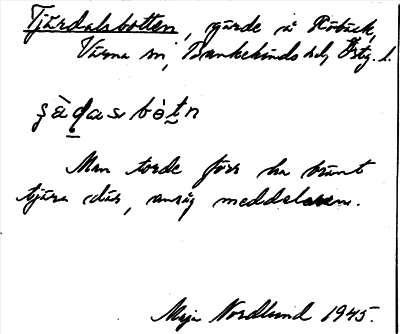 Tjärdalsbotten, gärde i Röbäck,
Värna sn, Bankekinds hd, Östg. l.
Man torde förr ha bränt
tjära där, ansåg meddelaren.
Maja Nordlund 1945.